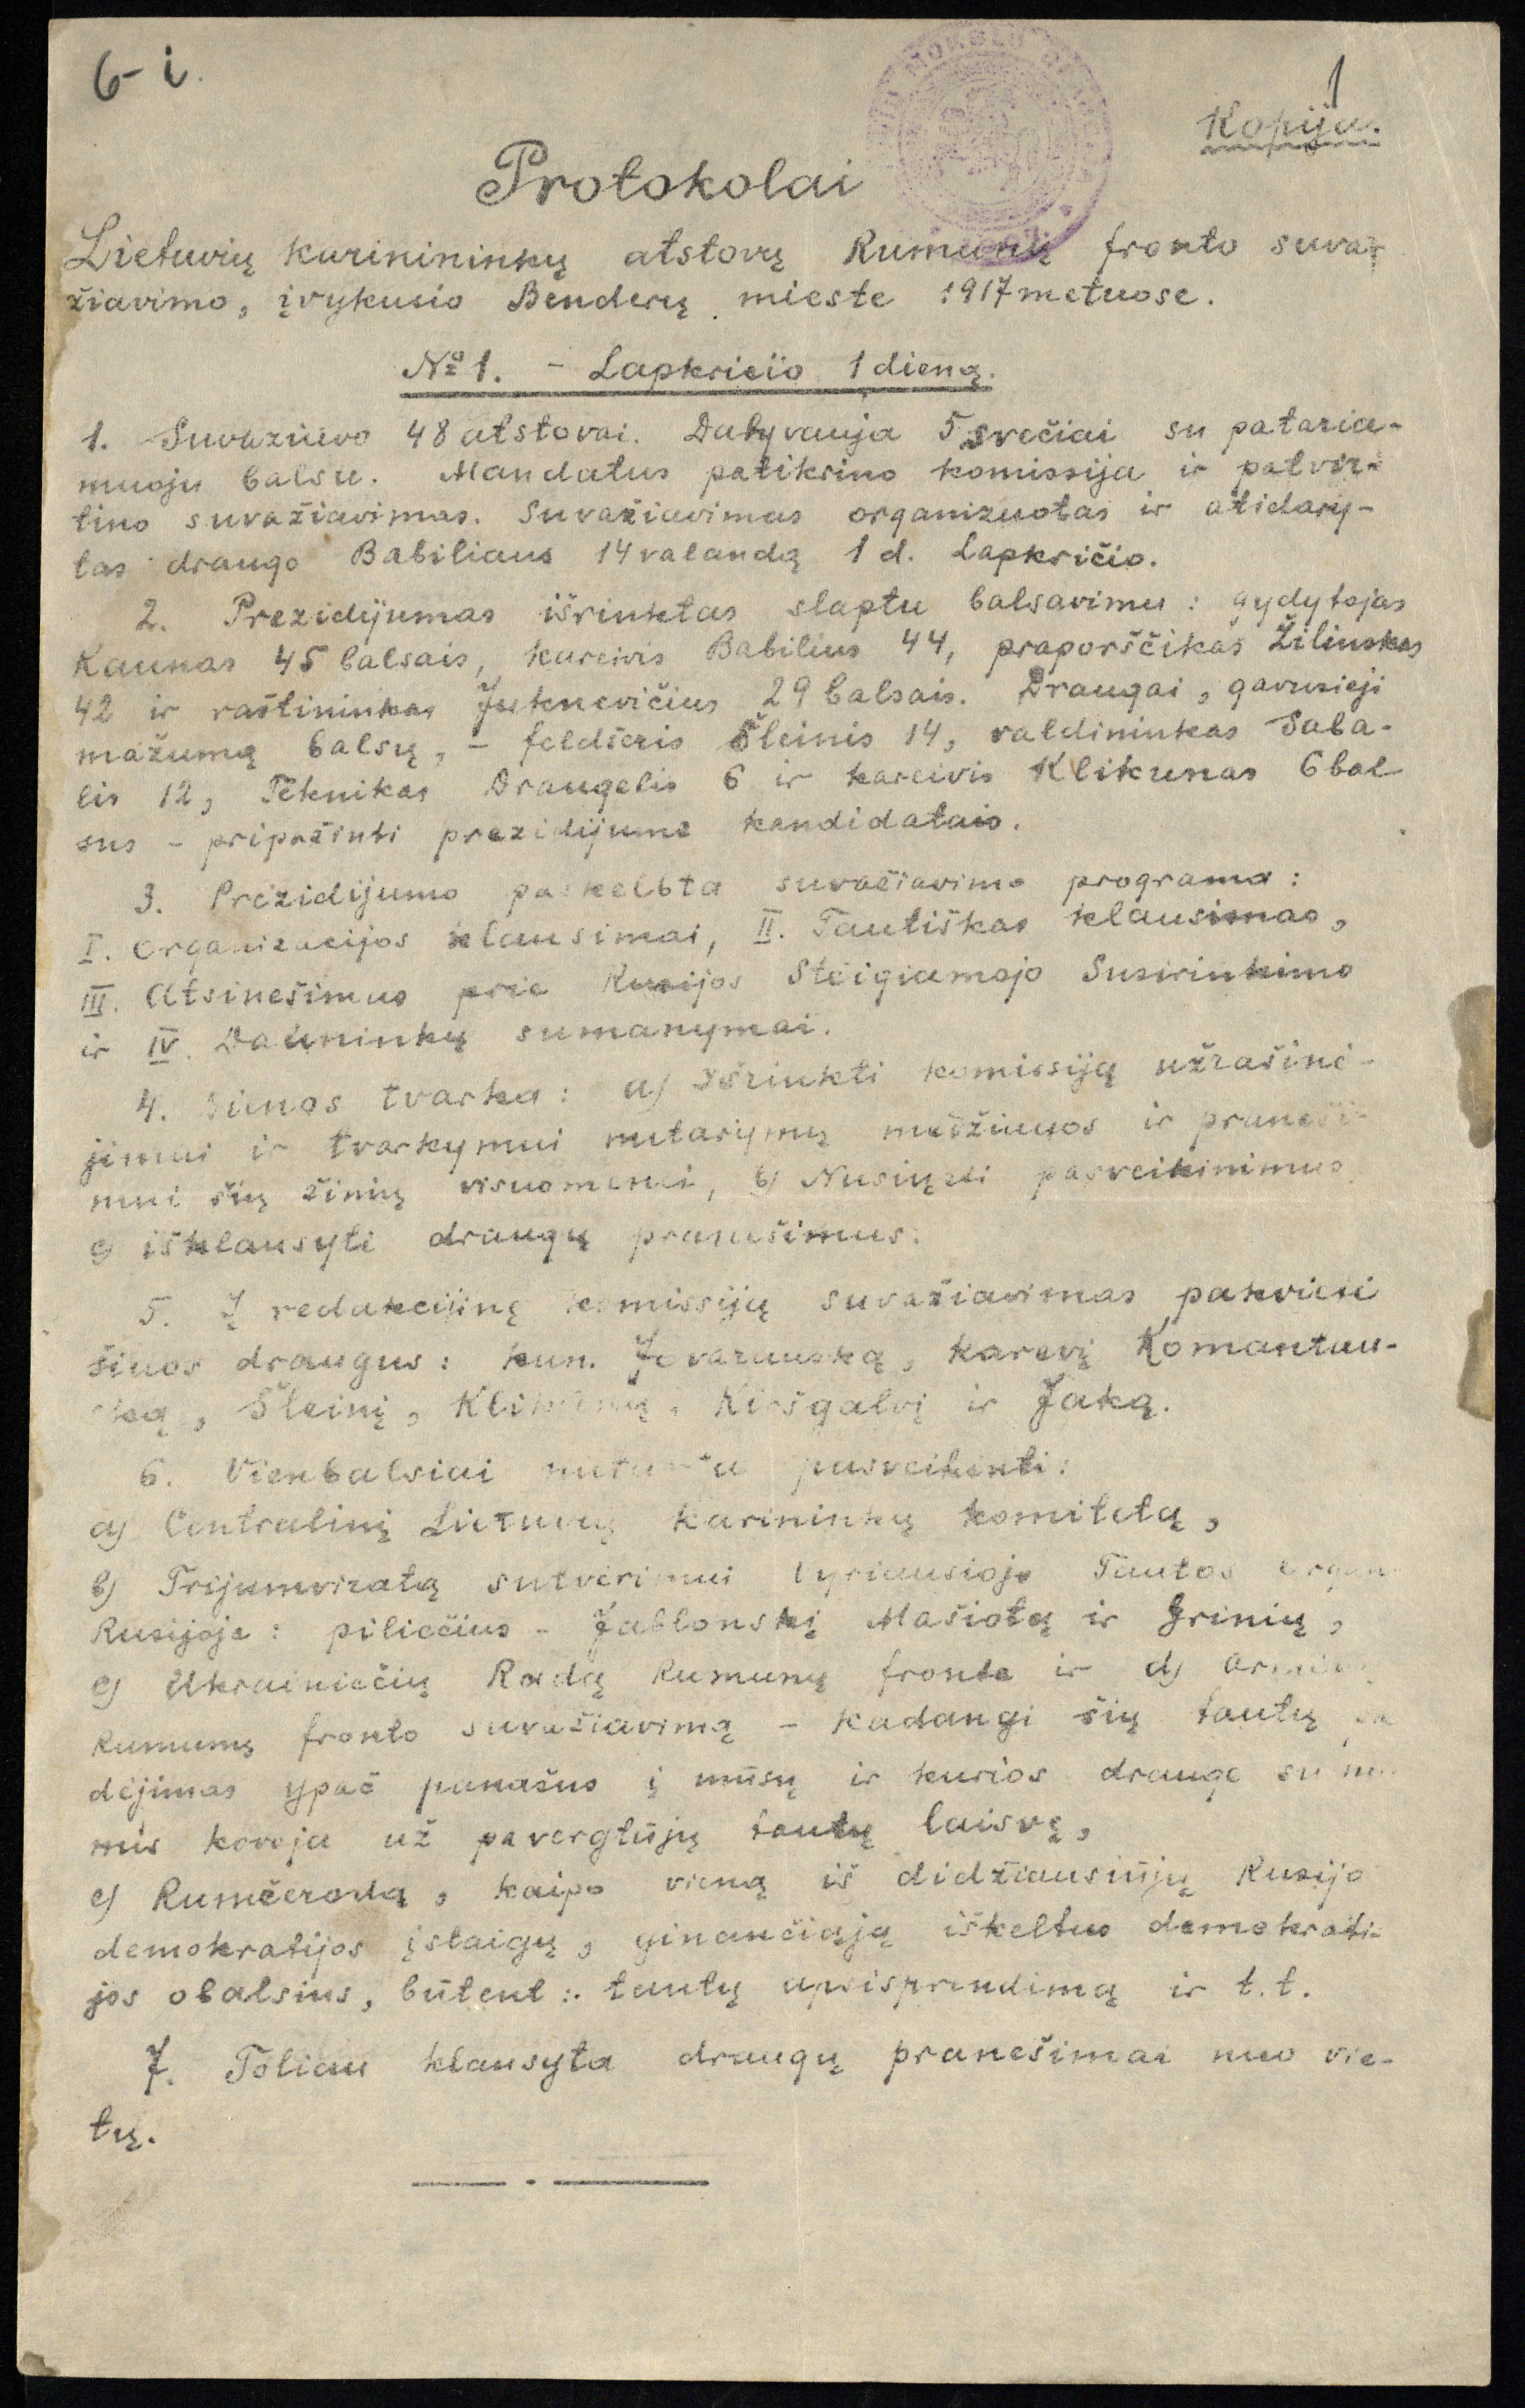 6-i.
1
Kopija.
Protokolai
Lietuvių karinininkų atstovų Rumunų fronto suva-
žiavimo, įvykusio Benderų mieste 1917 metuose.
№ 1. - Lapkričio 1 dieną.
1. Suvažiavo 48 atstovai. Dalyvauja 5 svečiai su pataria-
muoju balsu. Mandatus patikrino komissija ir patvir-
tino suvažiavimas. Suvažiavimas organizuotas ir atidary-
tas draugo Babiliaus 14 valandą 1 d. Lapkričio.
2. Prezidijumas išrinktas slaptu balsavimu: gydytojas
Kaunas 45 balsais, kareivis Babilius 44, praporščikas Žilinskas
42 ir raštininkas Juknevičius 29 balsais. Draugai, gavusieji
mažumą balsų, - feldšeris Šleinis 14, valdininkas Saba-
lis 12, Teknikas Draugelis 6 ir kareivis Klikunas 6 bal
sus - pripažinti prezidijumo kandidatais.
3. Prezidijumo paskelbta suvažiavimo programa:
I. Organizacijos klausimai, II. Tautiškas klausimas,
III. Atsinešimus prie Rusijos Steigiamojo Susirinkimo
ir IV. Dalininkų sumanymai.
4. Dienos tvarka: a) Išrinkti komissiją užrašinė-
jimui ir tvarkymui nutarymų medžiagos ir praneši-
mui šių žinių visuomenei, b) Nusiųsti pasveikinimus
c) išklausyti draugų pranešimus.
5. Į redakcijinę komissiją suvažiavimas pakvietė
šiuos draugus: kun. Jovarauską, kareivį Komantau-
ską, Šleinį, Klikūną, Kiršgalvį ir Jaką.
6. Vienbalsiai nutarta pasveikinti:
a) Centralinį Lietuvių Karininkų komitetą,
b) Trijumviratą sutvėrimui vyriausiojo Tautos organo
Rusijoje: piliečius - Jablonskį Mašiotą ir Grinių,
c) Ukrainiečių Radą Rumunų fronte ir d)
Rumunų fronto suvažiavimą - kadangi šių tautų pa
dėjimas ypač panašus į mūsų ir kurios drauge su mu
mis kovoja už pavergtųjų tautų laisvę,
e) Rumčerodą, kaipo vieną iš didžiausiųjų Rusijo
demokratijos įstaigų, ginančiąją iškeltus demokrati-
jos obalsius, būtent: tautų apsisprendimą ir t.t.
7. Toliau klausyta draugų pranešimai nuo vie-
tų.